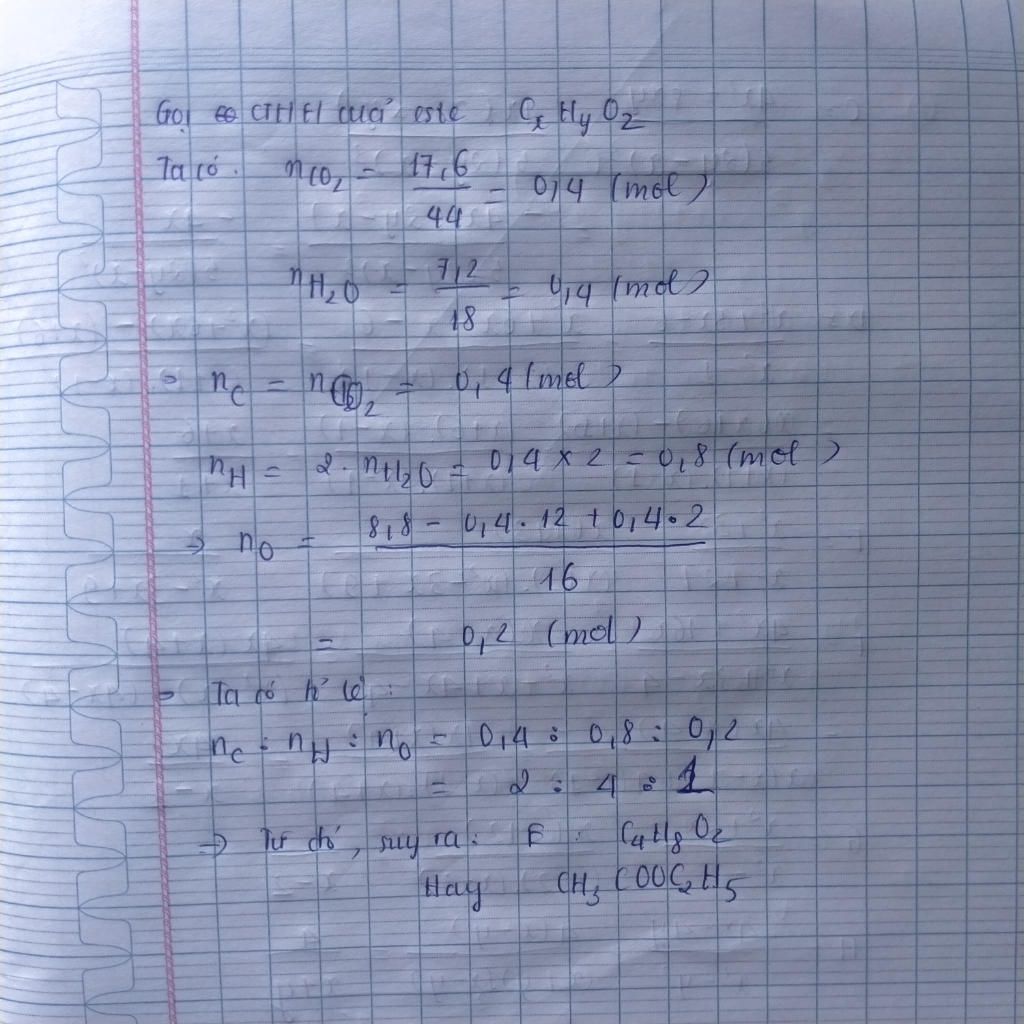 Gọi CTHH của este CxHyO2
Ta có: nCO2 = 17,6/44 = 0,4 (mol)
nH2O = 7,2/18 = 0,4 (mol)
nC = nCO2 = 0,4 (mol)
nH = 2 . nH2O = 0,4 x 2 = 0,8 (mol)
=> nO = 8,8 - 0,4 . 12 + 0,4 . 2 / 16
= 0,2 (mol)
Ta có tỉ lệ:
nC : nH : nO = 0,4 : 0,8 : 0,2
= 2 : 4 : 1
=> Từ đó, suy ra: E : C4H8O2
Hay CH3COOC2H5